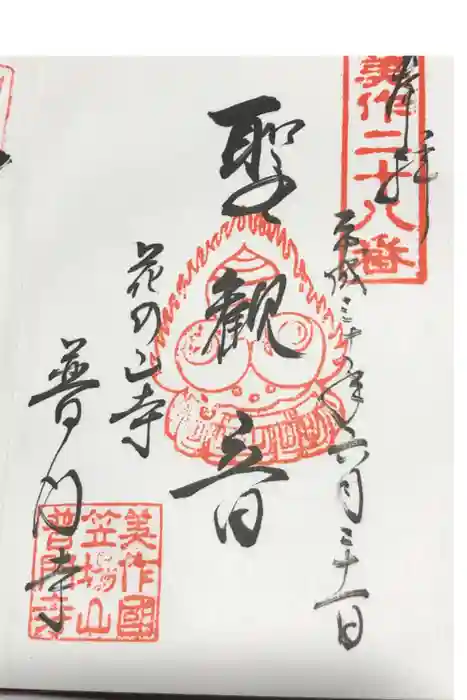 奉拝
美作二十八番
平成二十八年六月二十一日
聖観音
花の山寺
普門寺
美作國
笠場山
普門寺